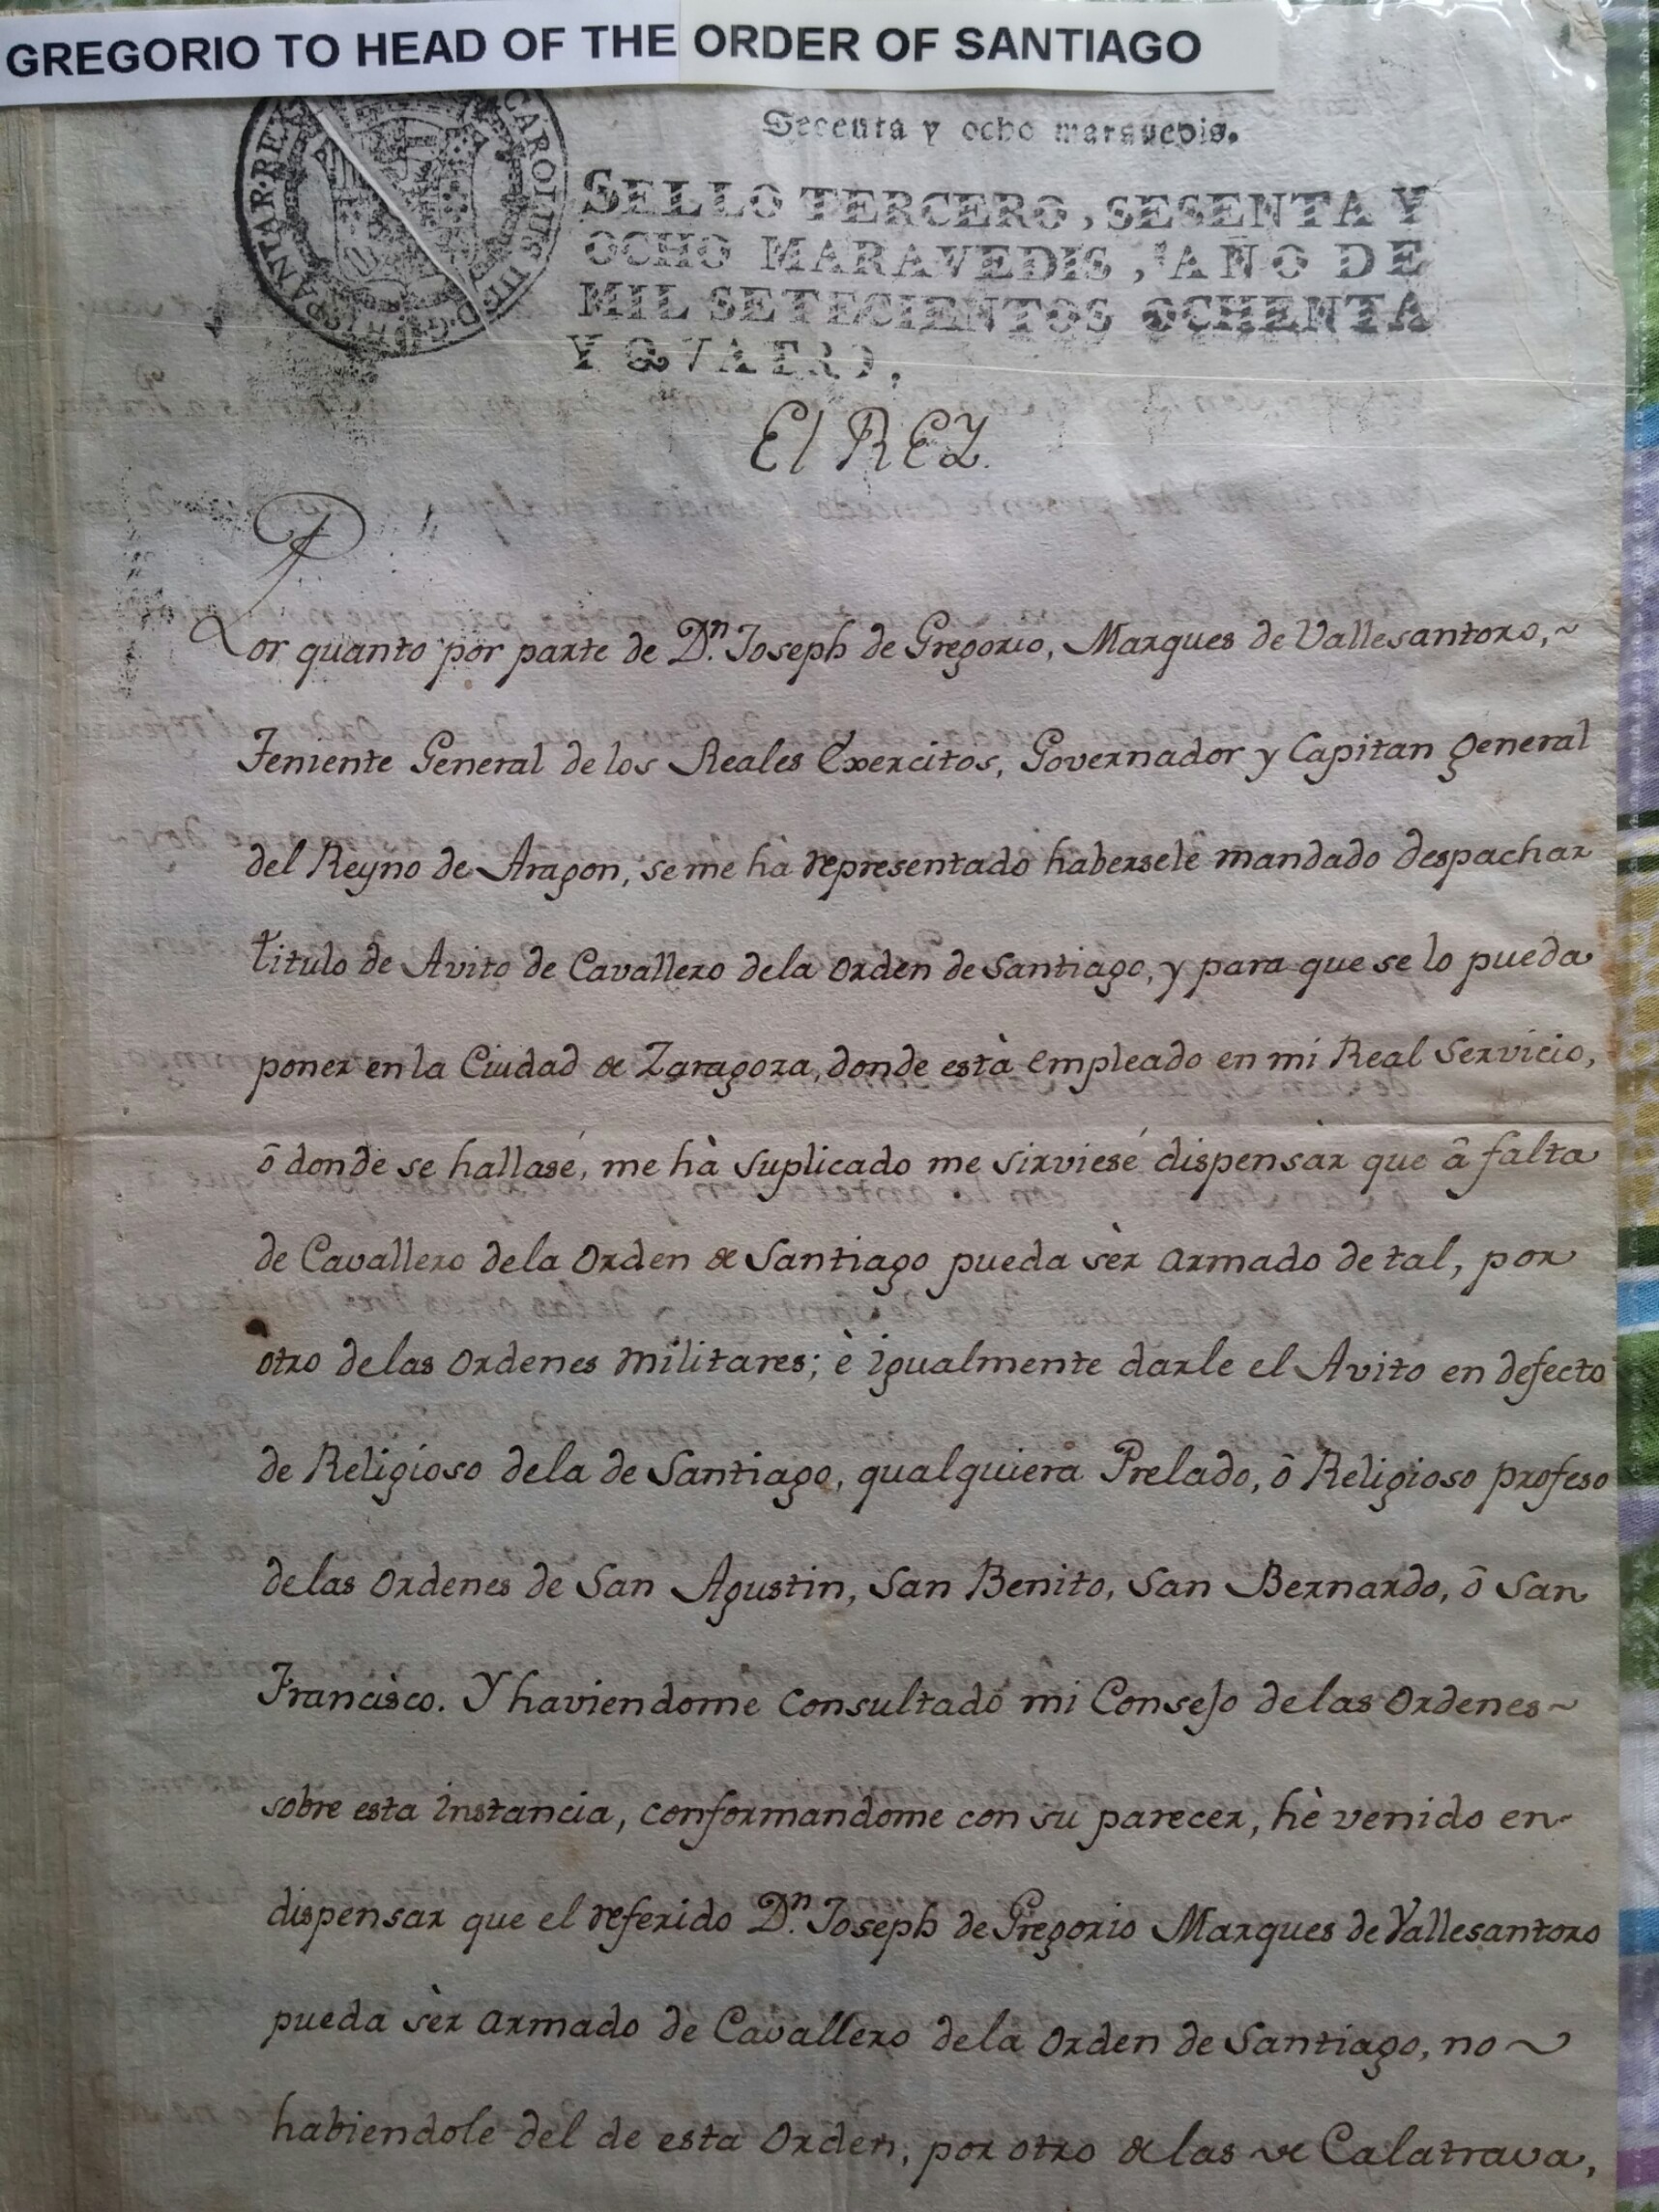 GREGORIO TO HEAD OF THE ORDER OF SANTIAGO
CAROLUS III D G HISPANIAR REX
Sesenta y ocho maravedis.
SELLO TERCERO, SESENTA Y
OCHO MARAVEDIS, AÑO DE
MIL SETECIENTOS OCHENTA
Y QVATRO,
El REY.
Por quanto por parte de Dn. Joseph de Gregorio, Marques de Vallesantoro,~
Teniente General de los Reales Exercitos, Governador y Capitan general
del Reyno de Aragon, se me hà representado habersele mandado despachar
titulo de Avito de Cavallero dela Orden de Santiago, y para que se lo pueda
poner en la Ciudad de Zaragoza, donde està empleado en mi Real Servicio,
ô donde se hallase, me hà suplicado me sirviesé dispensar que â falta
de Cavallero dela Orden de Santiago pueda sèr armado de tal, por
otro delas Ordenes Militares; è igualmente darle el Avito en defecto
de Religioso dela de Santiago, qualquiera Prelado, ô Religioso profeso
delas Ordenes de San Agustin, San Benito, San Bernardo, ô San
Francisco. Y haviendome consultado mi Consejo delas Ordenes~
sobre esta instancia, conformandome con su parecer, hè venido en
dispensar que el referido Dn. Joseph de Gregorio Marques de Vallesantoro
pueda sèr armado de Cavallero dela Orden de Santiago, no~
habiendole del de esta Orden, por otro de las de Calatrava,